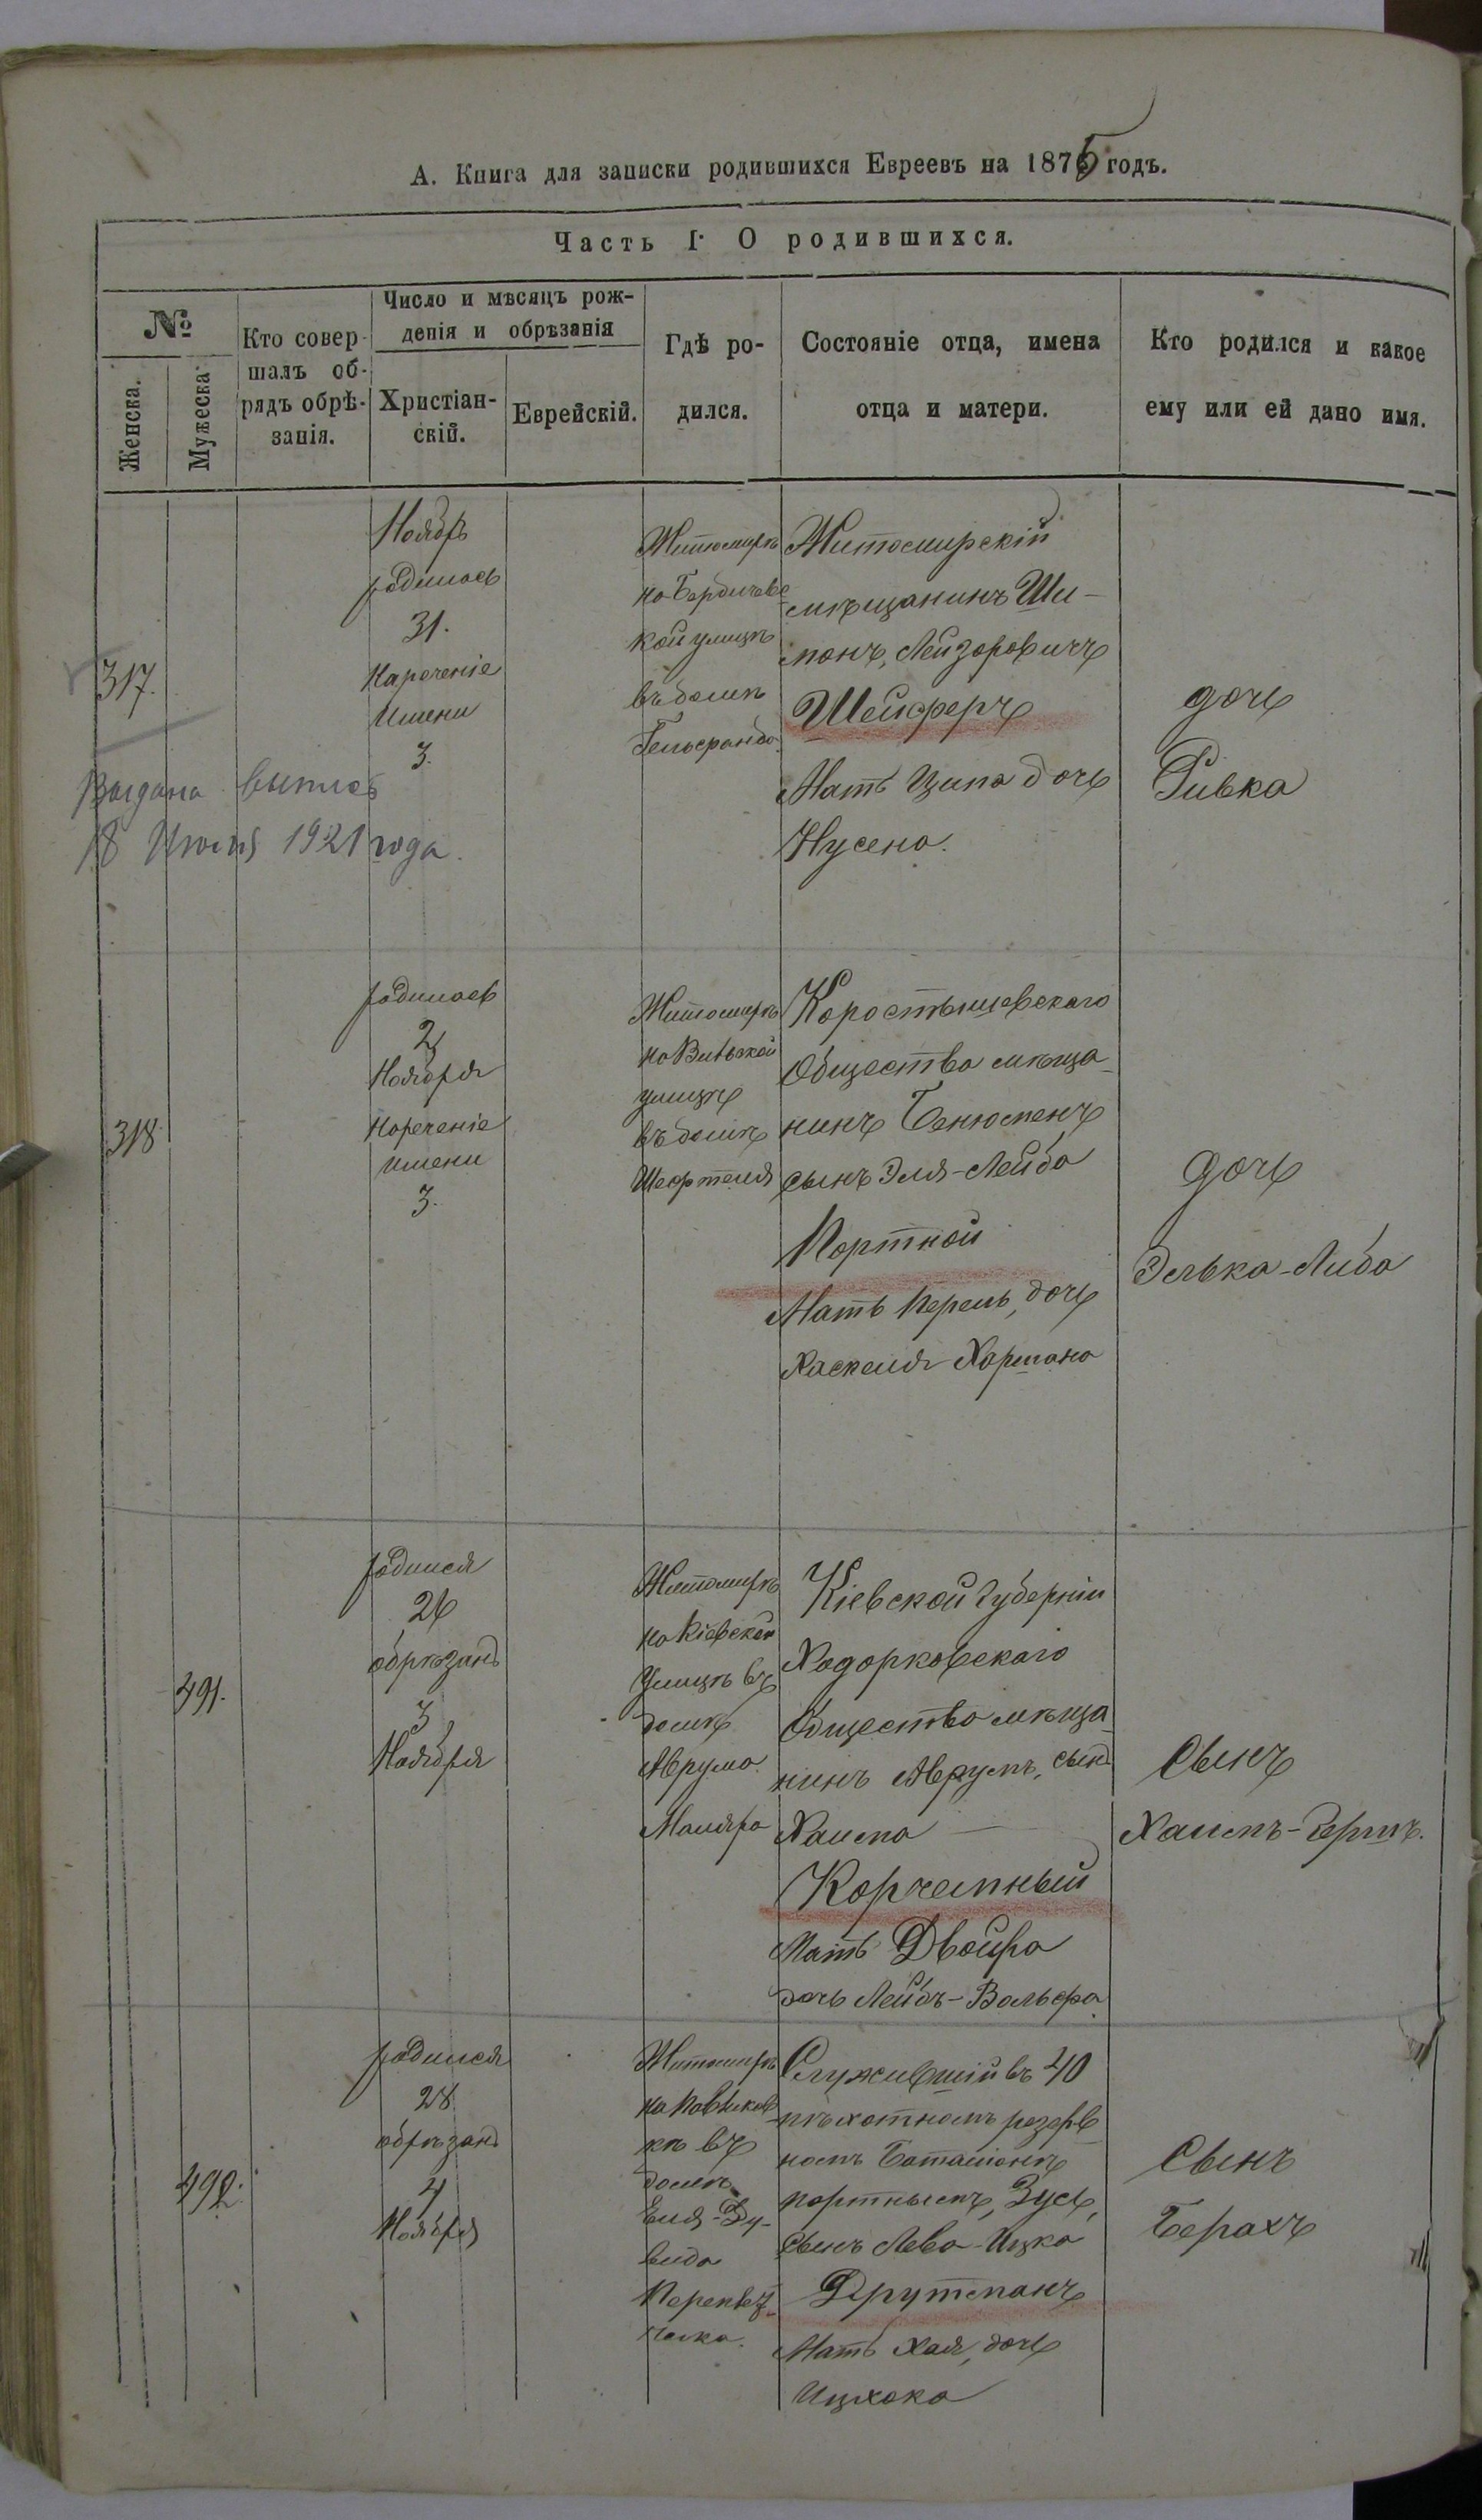 А. Книга для записки родившихся Евреевъ на 1875 годъ.
Часть I. О родившихся.
№
Женска.
Мужеска
Кто совер-
шалъ об-
рядъ обрѣ-
занія.
Число и мѣсяцъ рож-
денія и обрѣзанія
Христіан-
скій.
Еврейскій.
Гдѣ ро-
дился.
Состояніе отца, имена
отца и матери.
Кто родился и какое
ему или ей дано имя.
317.
Ноябрь
родилась
31.
Нареченіе
Имени
3.
Житомирѣ
на Бердичевс
кой улицѣ
въ домѣ
Гельфанда
Житомирскій
мѣщанинъ Ши-
монъ, Лейзоровичъ
Шейферъ
Мать Ципа дочь
Нусена.
дочь
Ривка
Выдана выпись
18 Июля 1921 года.
318
родилась
2
Ноября
нареченіе
имени
3.
Житомирѣ
на Вильской
улицѣ
въ домѣ
Шефтеля
Коростышевскаго
Общества мѣща-
нинъ Бенюменъ
сынъ Эля-Лейба
Портной
Мать Перель, дочь
Хаскеля Хармана
дочь
Элька-Либа
491.
родился
26
обрѣзанъ
3
Ноября
Житомирѣ
на Кіевской
Улицѣ въ
домѣ
Аврума
Маляра
Кіевской Губерніи
Ходорковскаго
Общества мѣща-
нинъ Аврумъ, сынъ
Хаима
Корчемный
Мать Двойра
дочь Лейбъ-Вольфа
Сынъ
Хаимъ-Гершъ.
492.
родился
28
обрѣзанъ
4
Ноября
Житомирѣ
кѣ въ
домѣ
Еля-Ду-
вида
Служившій въ 40
пѣхотномъ резерв
номъ Баталіонѣ
портнымъ, Зусь,
сынъ Лева-Ицка
Друтманъ
Мать Хая, дочь
Ицхока
Сынъ
Берахъ